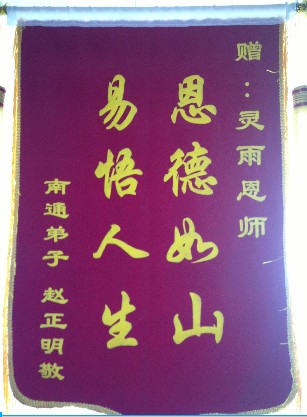 赠：灵雨恩师
恩德如山
易悟人生
南通弟子 赵正明敬